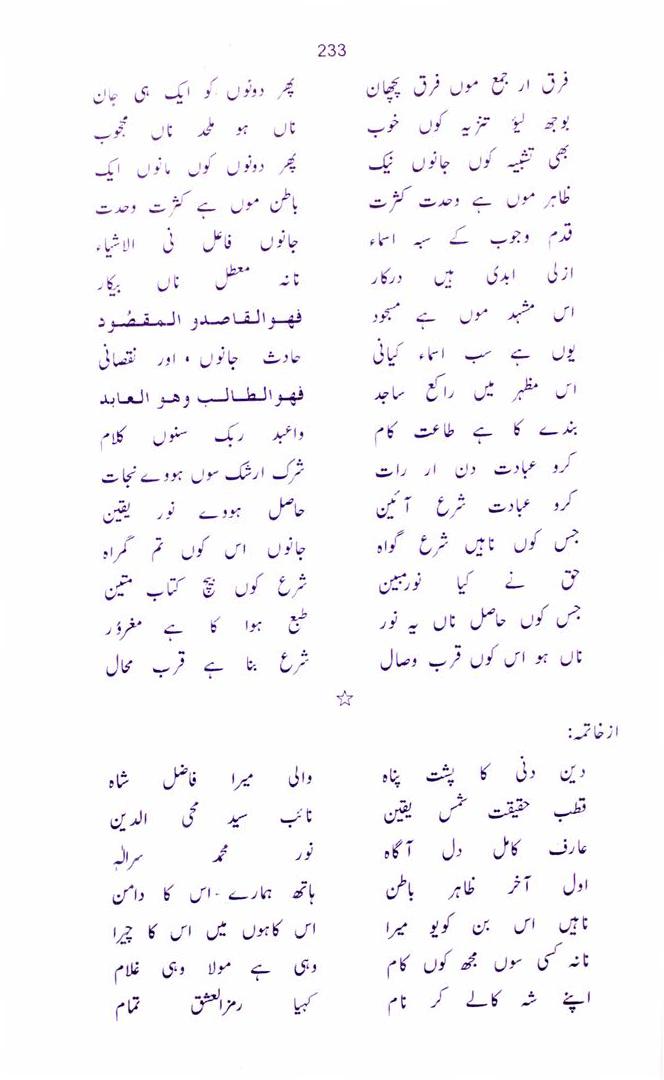 233
فرق ار جمع موں فرق پچھان پھر دونوں کو ایک ہی جان
بوجھ لیؤ تنزیہ کوں خوب ناں ہو ملحد ناں محجوب
بھی تشبیہ کوں جانوں نیک پھر دونوں کوں مانوں ایک
ظاہر موں ہے وحدت کثرت باطن موں ہے کثرت وحدت
قدم وجوب کے سبہ اسماء جانوں فاعل نی الاشیاء
ازلی ابدی ہیں درکار نانہ معطل ناں بیکار
اس مشہد موں ہے مسجود فھوالقاصدو المقصُود
یوں ہے سب اسماء کیانی حادث جانوں ، اور نقصانی
اس مظہر میں راکع ساجد فھوالطالب وھو العابد
بندے کا ہے طاعت کام واعبد ربک سنوں کلام
کرو عبادت دن ار رات شرک ارشک سوں ہووے نجات
کرو عبادت شرع آئین حاصل ہووے نور یقین
جس کوں ناہیں شرع گواہ جانوں اس کوں تم گمراہ
حق نے کیا نورمبین شرع کوں بیچ کتاب متین
جس کوں حاصل ناں یہ نور طبع ہوا کا ہے مغرؤر
ناں ہو اس کوں قرب وصال شرع بنا ہے قرب محال
☆
از خاتمہ:
دین دنی کا پشت پناہ والی میرا فاضل شاہ
قطب حقیقت شمس یقین نائب سید محی الدین
عارف کامل دل آگاہ نور محمد سرالٰہ
اول آخر ظاہر باطن ہاتھ ہمارے اس کا دامن
ناہیں اس بن کویو میرا اس کاہوں میں اس کا چیرا
نانہ کسی سوں مجھ کوں کام وہی ہے مولا وہی غلام
اپنے شہ کالے کر نام کہیا رمزالعشق تمام